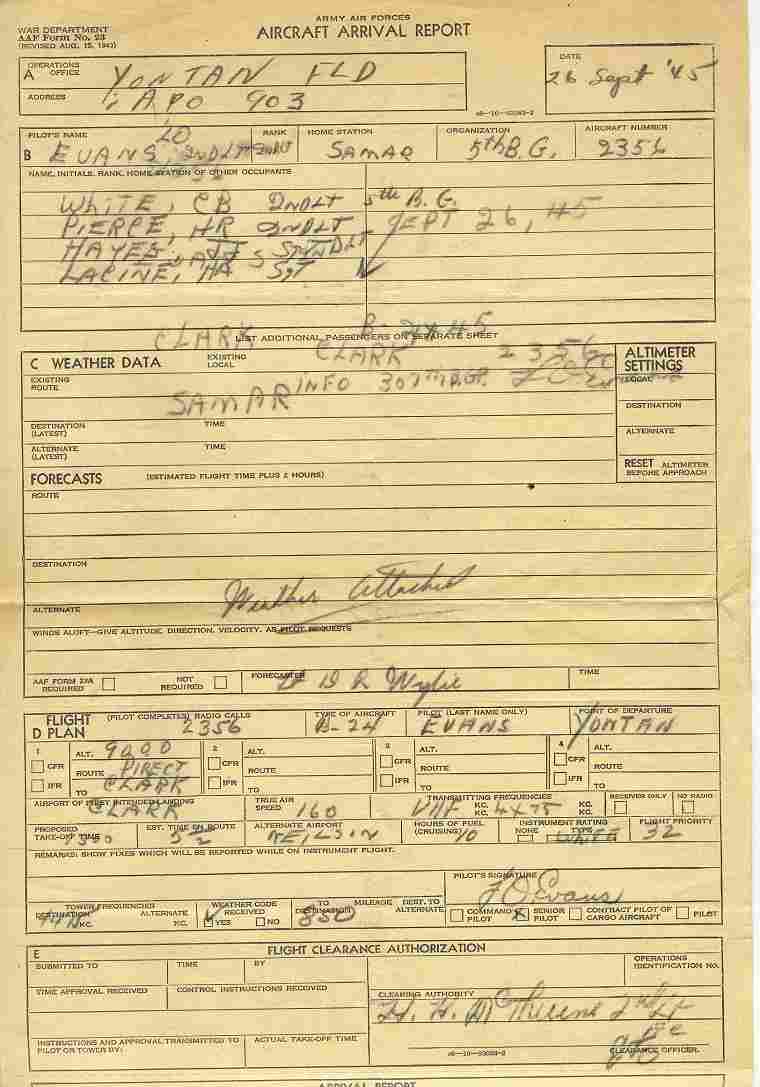 ARMY AIR FORCES
WAR DEPARTMENT
AAF Form No. 23
(REVISED AUG. 15, 1943)
AIRCRAFT ARRIVAL REPORT
A OPERATIONS OFFICE YONTAN FLD
ADDRESS APO 903
DATE
26 Sept '45
B PILOT'S NAME RANK HOME STATION ORGANIZATION AIRCRAFT NUMBER
EVANS, 2NDLT SAMAR 5th B.G. 2356
NAME, INITIALS, RANK, HOME STATION OF OTHER OCCUPANTS
WHITE, CB 2NDLT 5th B.G.
PIERCE, HR 2NDLT SEPT 26, 45
HAYES,
LACINE, HA SGT
CLARK
LIST ADDITIONAL PASSENGERS ON SEPARATE SHEET
C WEATHER DATA EXISTING LOCAL CLARK 2356 ALTIMETER SETTINGS
EXISTING ROUTE SAMAR INFO 307 LOCAL
DESTINATION
DESTINATION (LATEST) TIME
ALTERNATE
ALTERNATE (LATEST) TIME
RESET ALTIMETER BEFORE APPROACH
FORECASTS (ESTIMATED FLIGHT TIME PLUS 2 HOURS)
ROUTE
DESTINATION
Weather Attached
ALTERNATE
WINDS ALOFT—GIVE ALTITUDE, DIRECTION, VELOCITY, AS PILOT REQUESTS
AAF FORM 23A REQUIRED NOT REQUIRED FORECASTER D R Wylie TIME
D FLIGHT PLAN (PILOT COMPLETES) RADIO CALLS 2356 TYPE OF AIRCRAFT B-24 PILOT (LAST NAME ONLY) EVANS POINT OF DEPARTURE YONTAN
1 CFR IFR ALT. 9000 ROUTE DIRECT TO CLARK
2 CFR IFR ALT. ROUTE TO
3 CFR IFR ALT. ROUTE TO
4 CFR IFR ALT. ROUTE TO
AIRPORT OF FIRST INTENDED LANDING CLARK TRUE AIR SPEED 160 TRANSMITTING FREQUENCIES VHF KC. KC. 4475 KC. KC. RECEIVER ONLY NO RADIO
PROPOSED TAKE-OFF TIME 1300 EST. TIME EN ROUTE ALTERNATE AIRPORT HOURS OF FUEL (CRUISING) 10 INSTRUMENT RATING NONE TYPE WHITE FLIGHT PRIORITY 32
REMARKS: SHOW FIXES WHICH WILL BE REPORTED WHILE ON INSTRUMENT FLIGHT.
PILOT'S SIGNATURE
Evans
TOWER FREQUENCIES DESTINATION KC. ALTERNATE KC. WEATHER CODE RECEIVED YES NO MILEAGE TO DESTINATION 850 DEST. TO ALTERNATE
COMMAND PILOT SENIOR PILOT CONTRACT PILOT OF CARGO AIRCRAFT PILOT
E FLIGHT CLEARANCE AUTHORIZATION
SUBMITTED TO TIME BY OPERATIONS IDENTIFICATION NO.
TIME APPROVAL RECEIVED CONTROL INSTRUCTIONS RECEIVED CLEARING AUTHORITY
INSTRUCTIONS AND APPROVAL TRANSMITTED TO PILOT OR TOWER BY: ACTUAL TAKE-OFF TIME
CLEARANCE OFFICER.
ARRIVAL REPORT